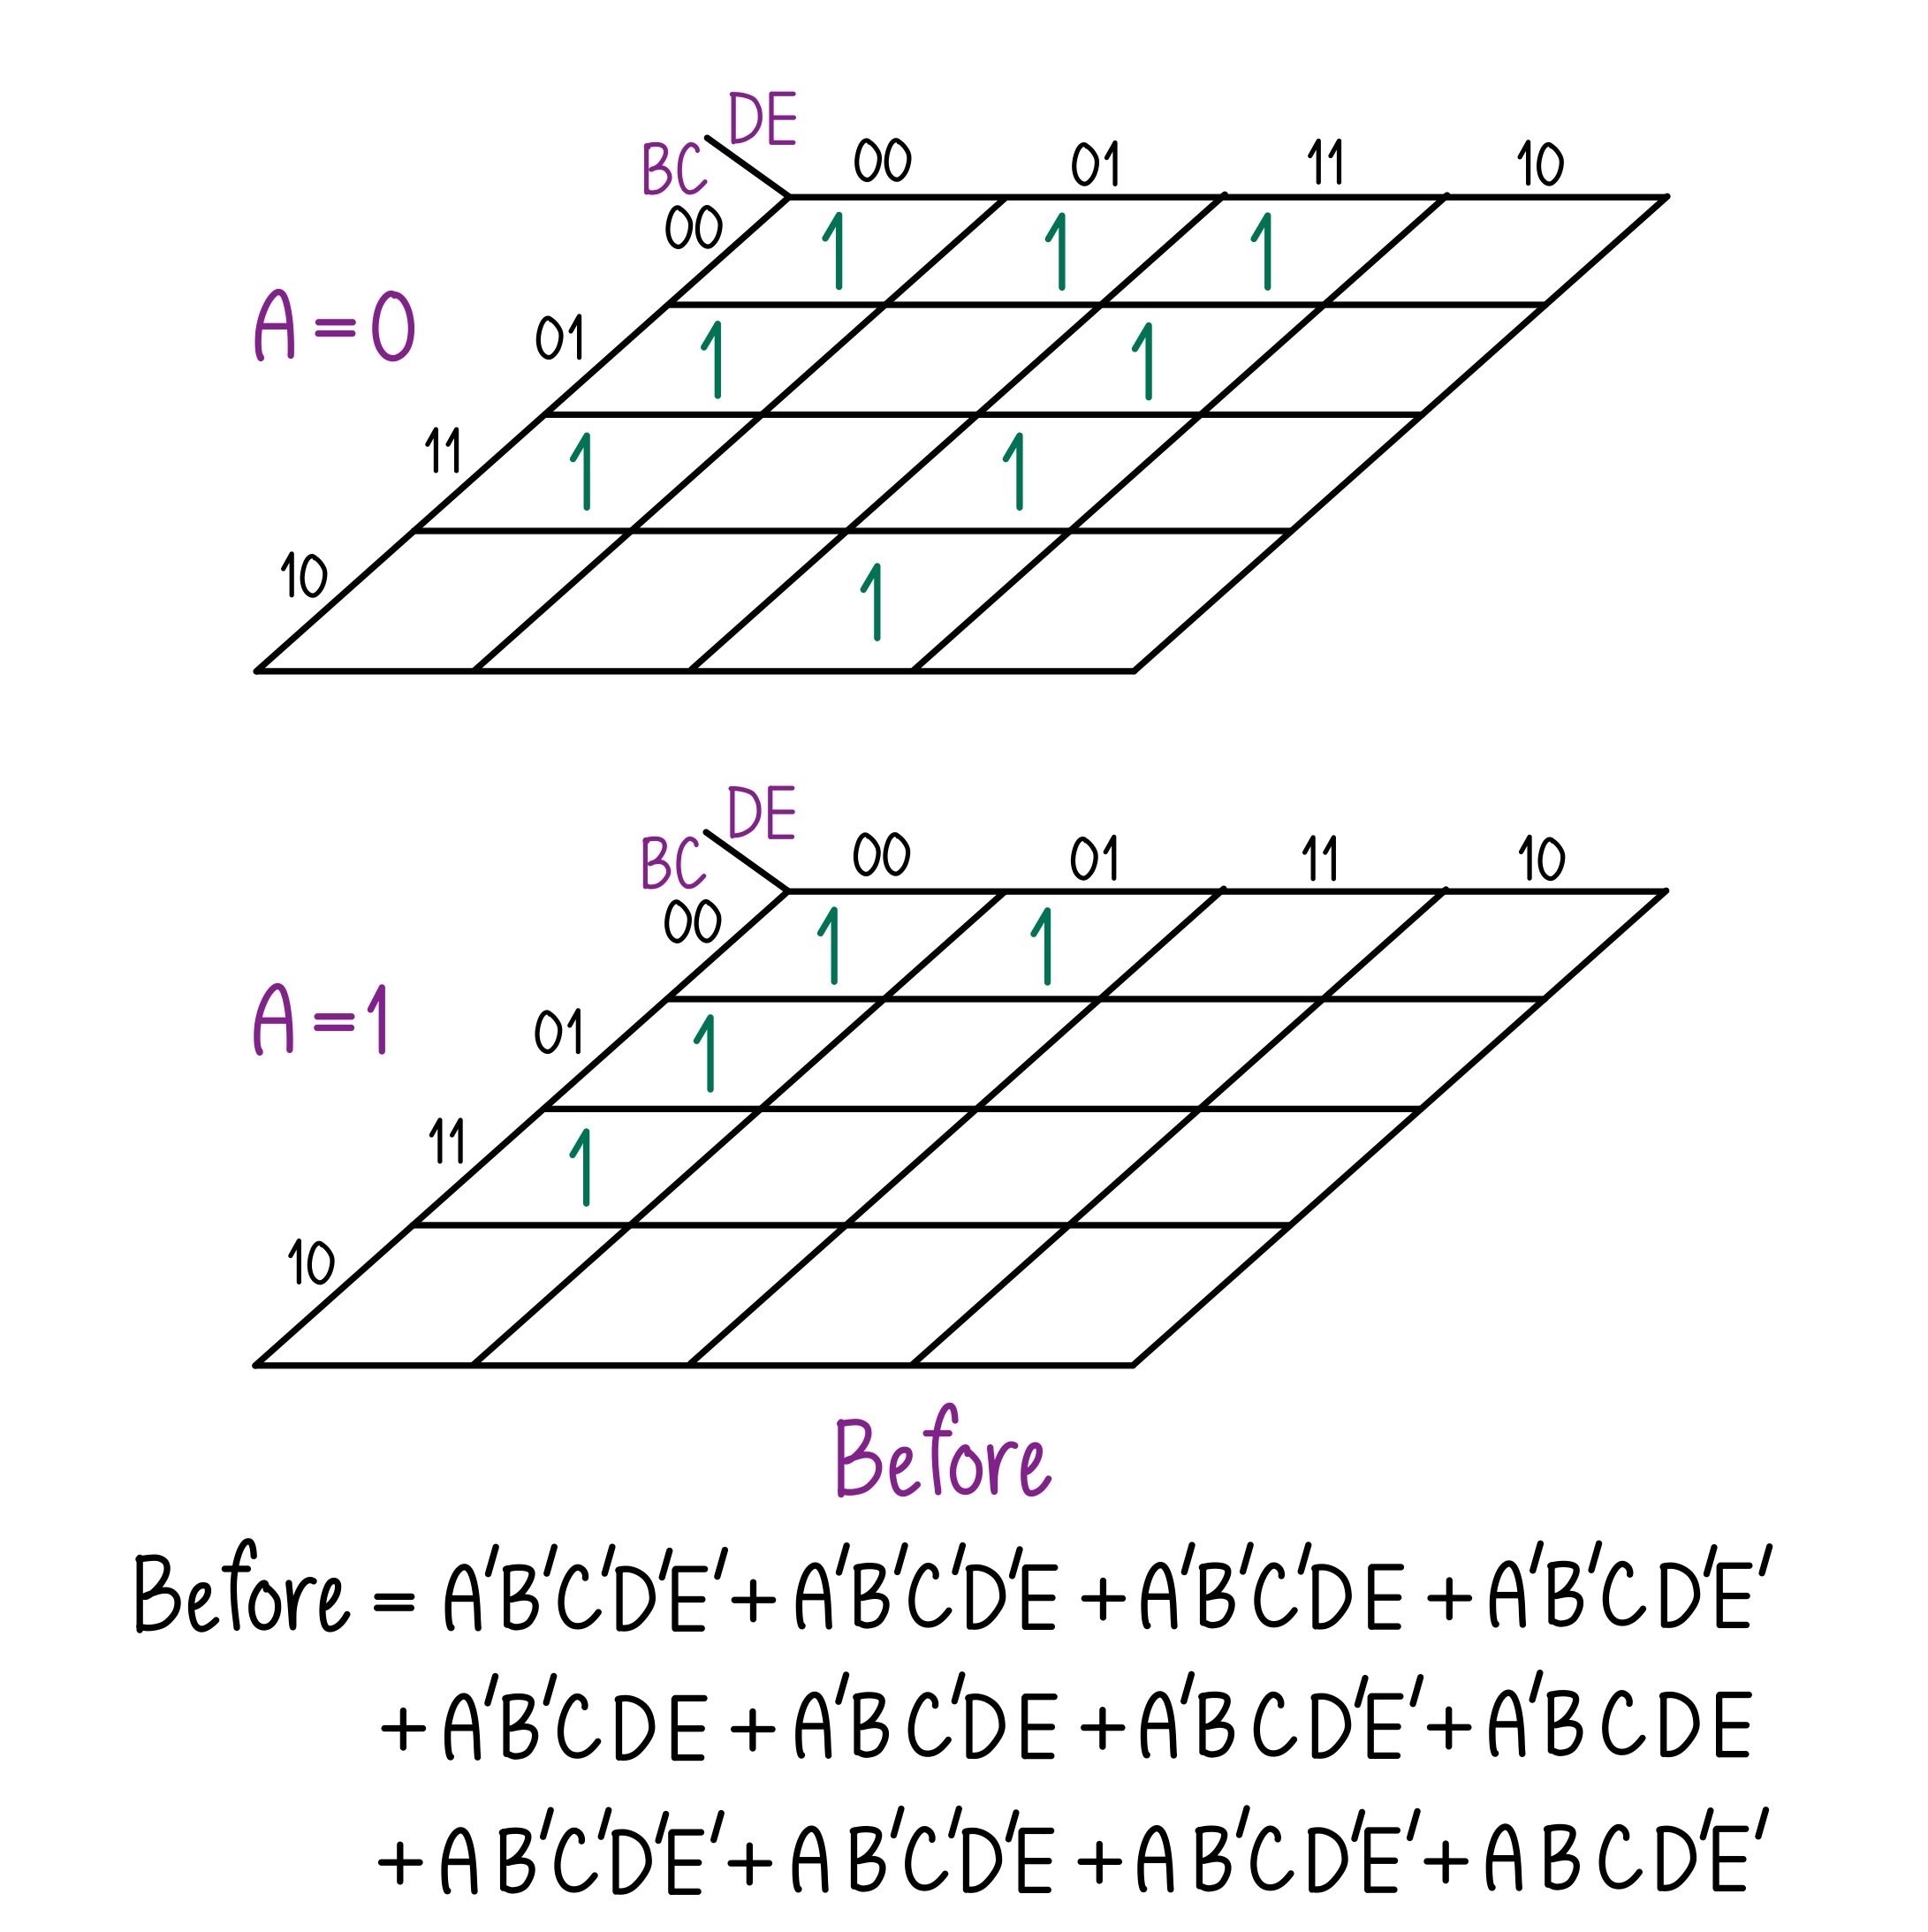 DE
BC 00 01 11 10
00 1 1 1
A = 0
01 1 1
11 1 1
10 1
DE
BC 00 01 11 10
00 1 1
A = 1
01 1
11 1
10
Before
Before = A'B'C'D'E' + A'B'C'D'E + A'B'C'DE + A'B'CD'E'
+ A'B'CDE + A'BC'DE + A'BCD'E' + A'BCDE
+ AB'C'D'E' + AB'C'D'E + AB'CD'E' + ABCD'E'